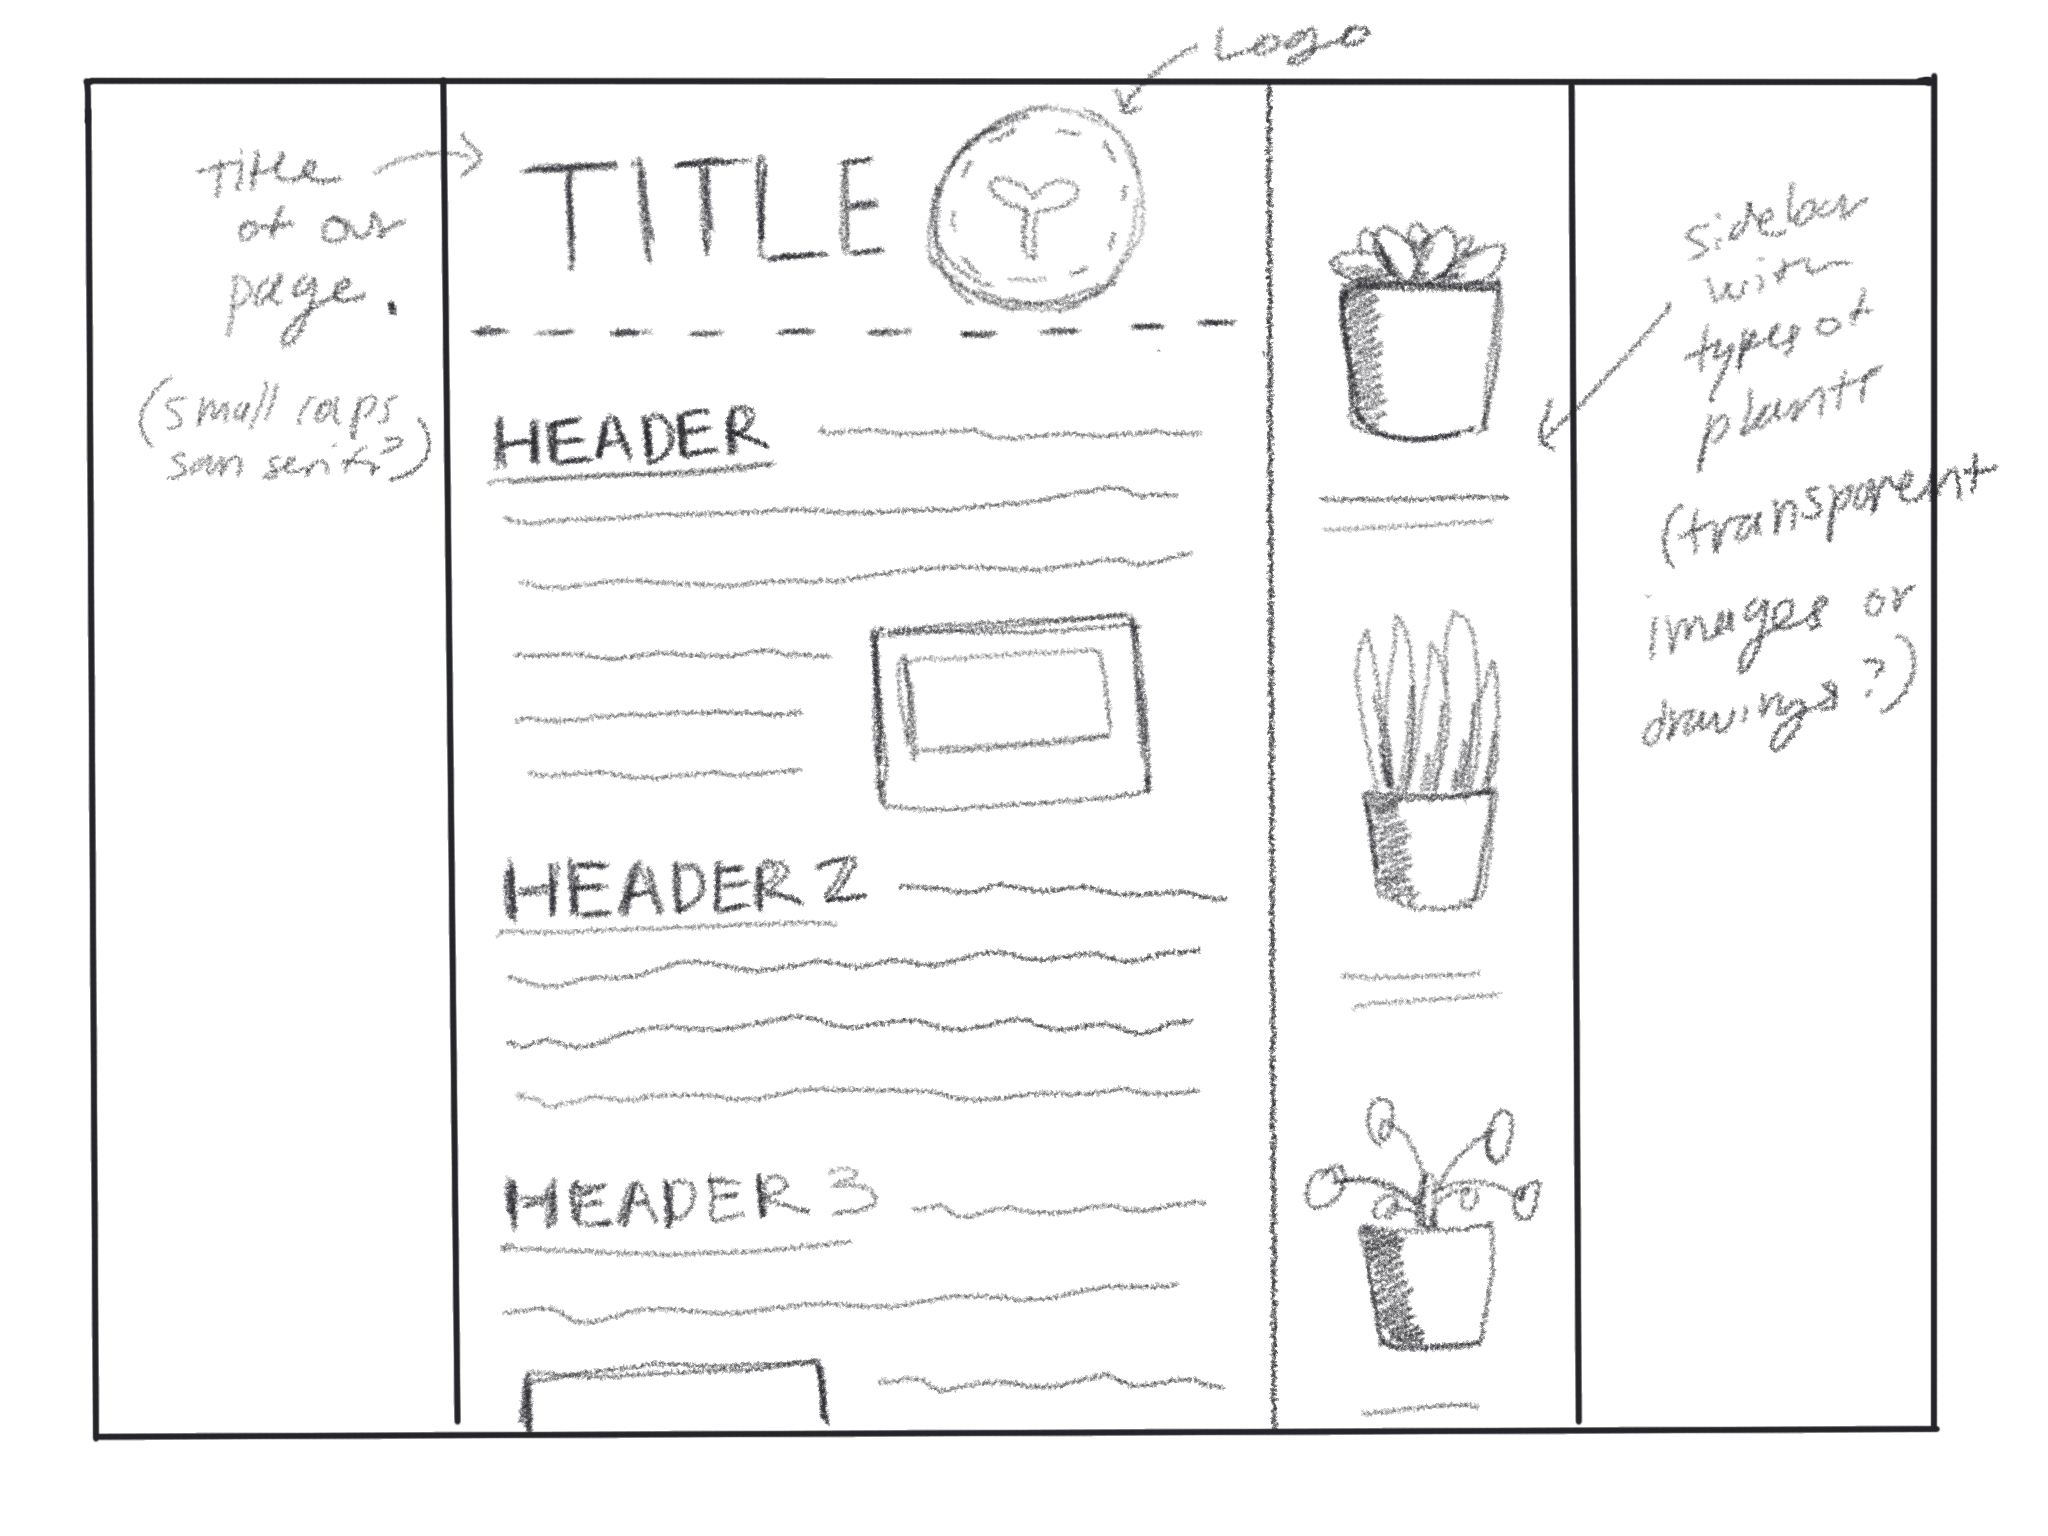 Logo
Title
of our
page.
(small caps
san serif?)
TITLE
HEADER
HEADER 2
HEADER 3
sidebar
with
types of
plants
(transparent
images or
drawings?)